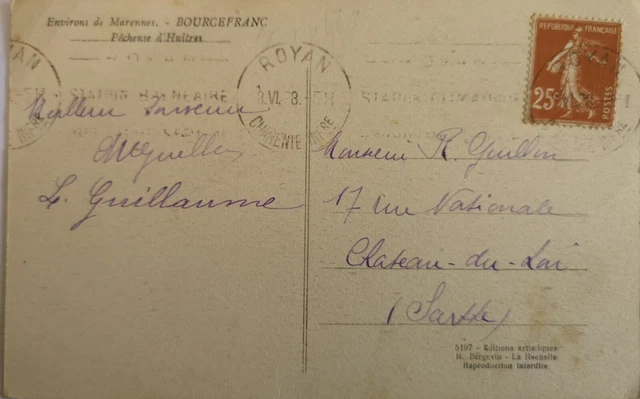 Environs de Marennes. - BOURCEFRANC
Pêcheuse d'Huîtres
ROYAN
CHARENTE
STATION BALNEAIRE
25c
RÉPUBLIQUE FRANÇAISE
POSTES
Meilleur Souvenir
L. Guillaume
Monsieur R. Guillon
17 rue Nationale
Chateau-du-Loir
(Sarthe)
5197 - Editions artistiques
R. Bergevin - La Rochelle
Reproduction interdite